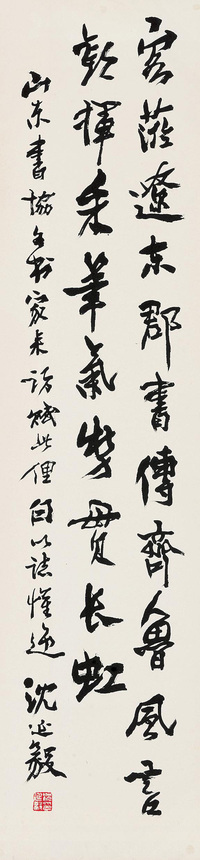 客蒞遼東郡書傳齊魯風雲
揮采筆氣勢貫長虹
山東書協書家來訪賦此俚句以誌懽迎 沈延毅